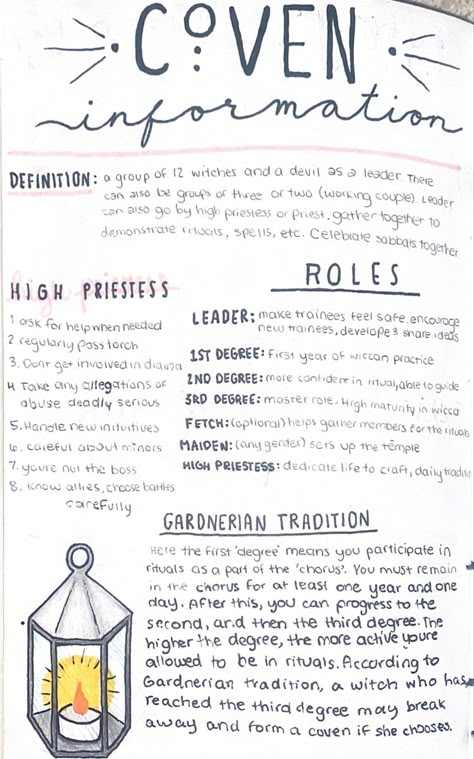 COVEN
information
DEFINITION: a group of 12 witches and a devil as a leader. There
can also be groups of three or two (working couple). Leader
can also go by high priestess or priest. gather together to
demonstrate rituals, spells, etc. Celebrate sabbats together.
HIGH PRIESTESS
1 ask for help when needed
2 regularly pass torch
3. Dont get involved in drama
4 Take any allegations of
abuse deadly serious
5. Handle new intuitives
6. careful about minors
7. youre not the boss
8. know allies, choose battles
carefully
ROLES
LEADER: make trainees feel safe. encourage
new trainees, develope & share ideas
1ST DEGREE: first year of wiccan practice
2ND DEGREE: more confident in ritual, able to guide
3RD DEGREE: master role. High maturity in wicca
FETCH: (optional) helps gather members for the rituals
MAIDEN: (any gender) sets up the temple
HIGH PRIESTESS: dedicate life to craft, daily
GARDNERIAN TRADITION
Here the first 'degree' means you participate in
rituals as a part of the 'chorus'. You must remain
in the chorus for at least one year and one
day. After this, you can progress to the
second, and then the third degree. The
higher the degree, the more active youre
allowed to be in rituals. According to
Gardnerian tradition, a witch who has
reached the third degree may break
away and form a coven if she chooses.